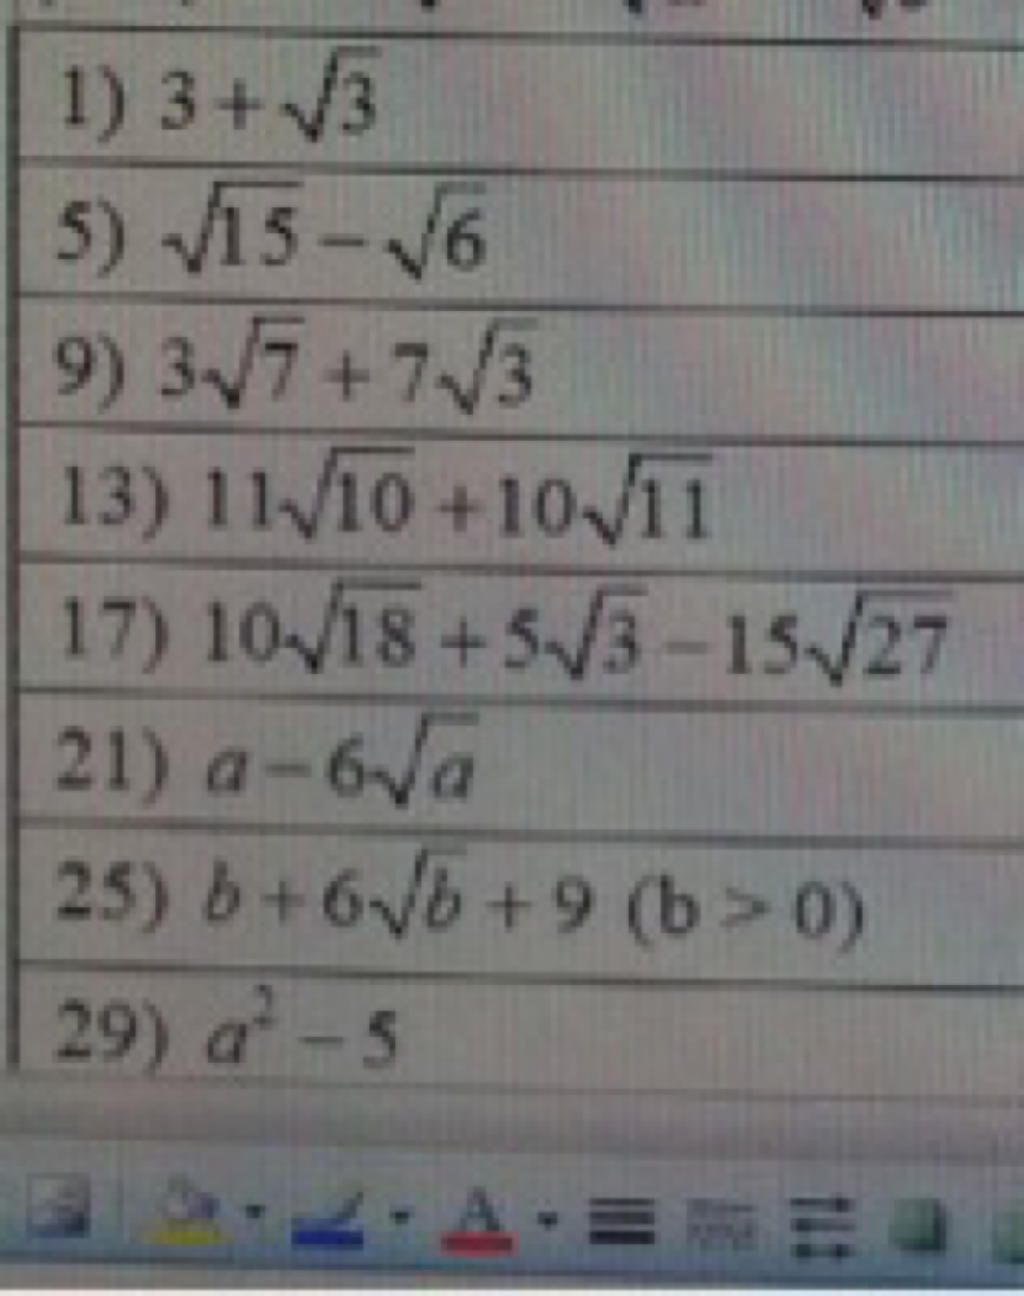 1) 3 + √3
5) √15 − √6
9) 3√7 + 7√3
13) 11√10 + 10√11
17) 10√18 + 5√3 − 15√27
21) a − 6√a
25) b + 6√b + 9 (b > 0)
29) a² − 5